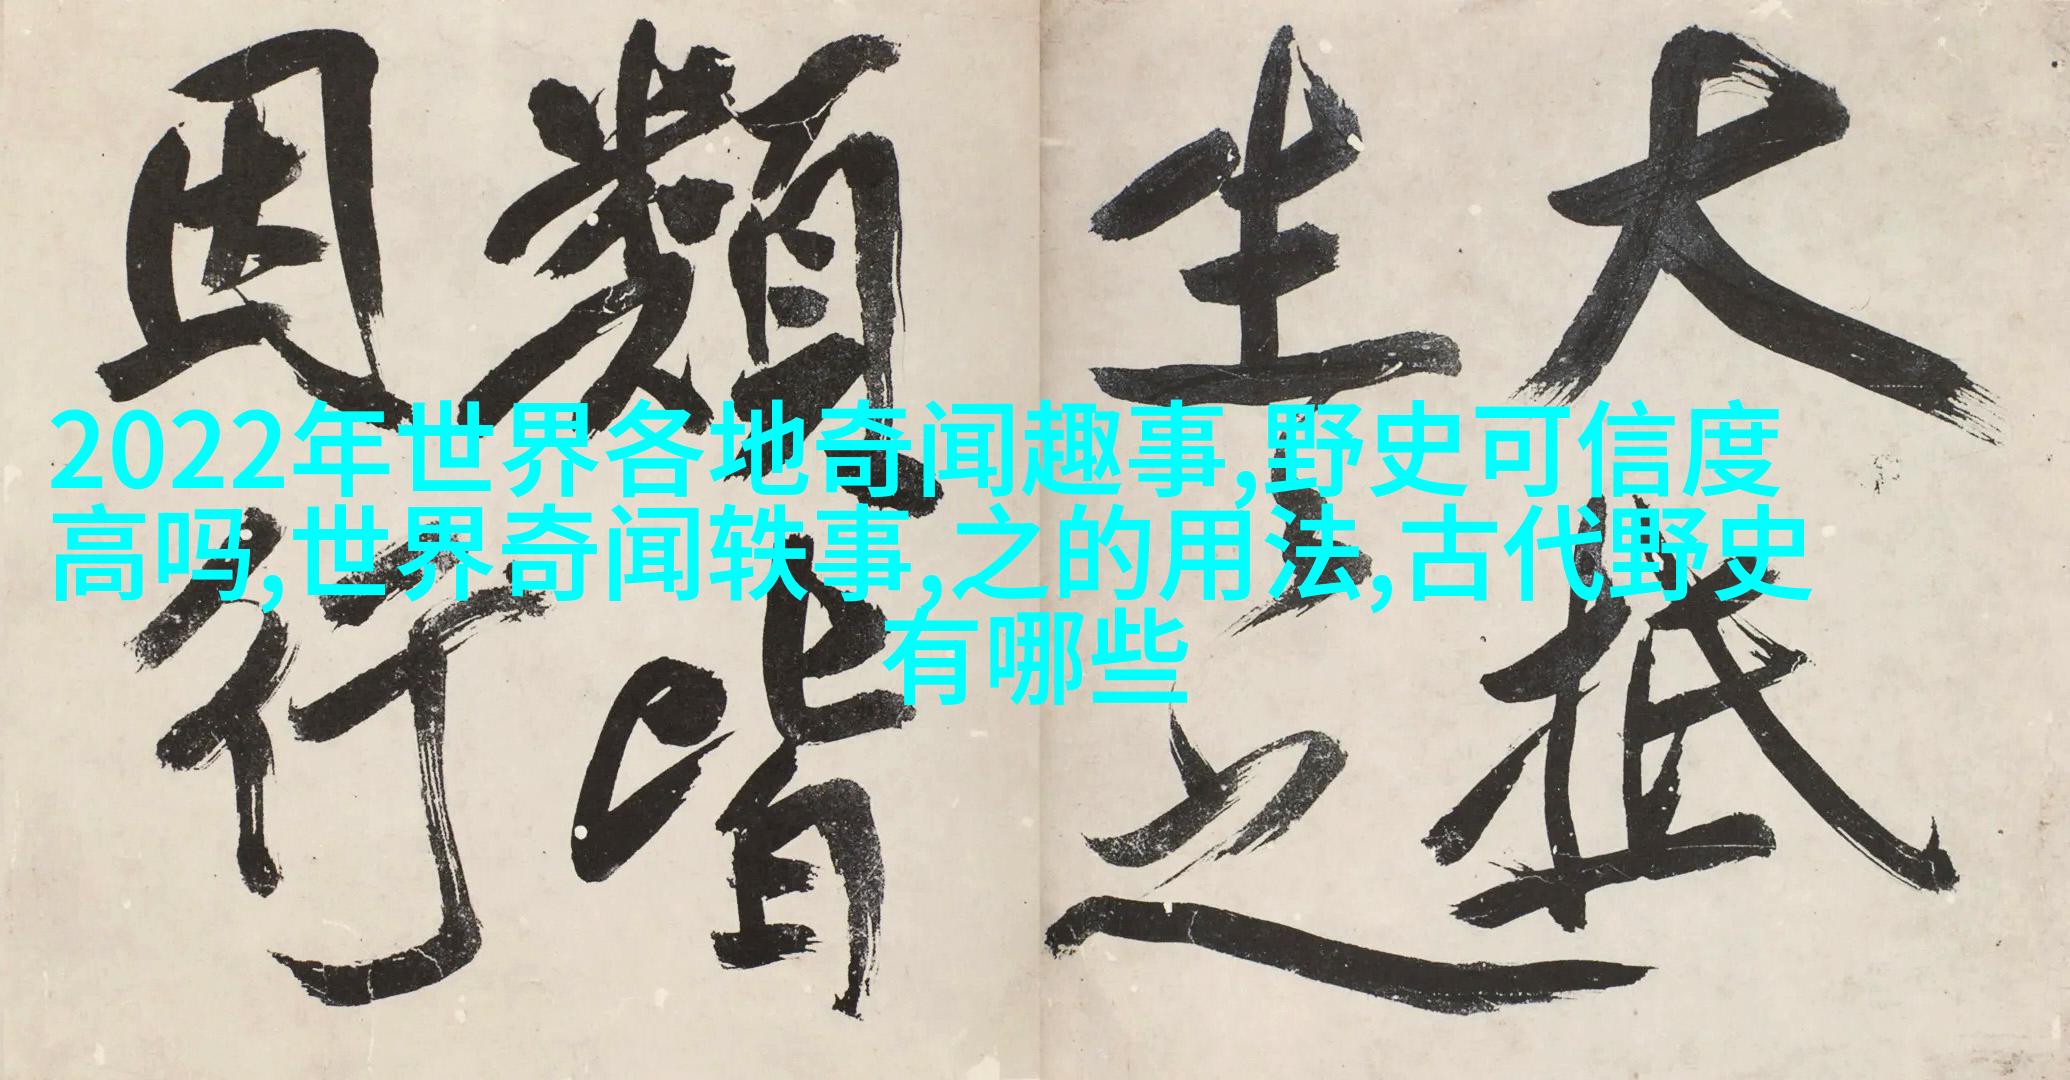 大抵
生之
類皆
因行
2022年世界各地奇闻趣事,野史可信度
高吗,世界奇闻轶事,之的用法,古代野史
有哪些